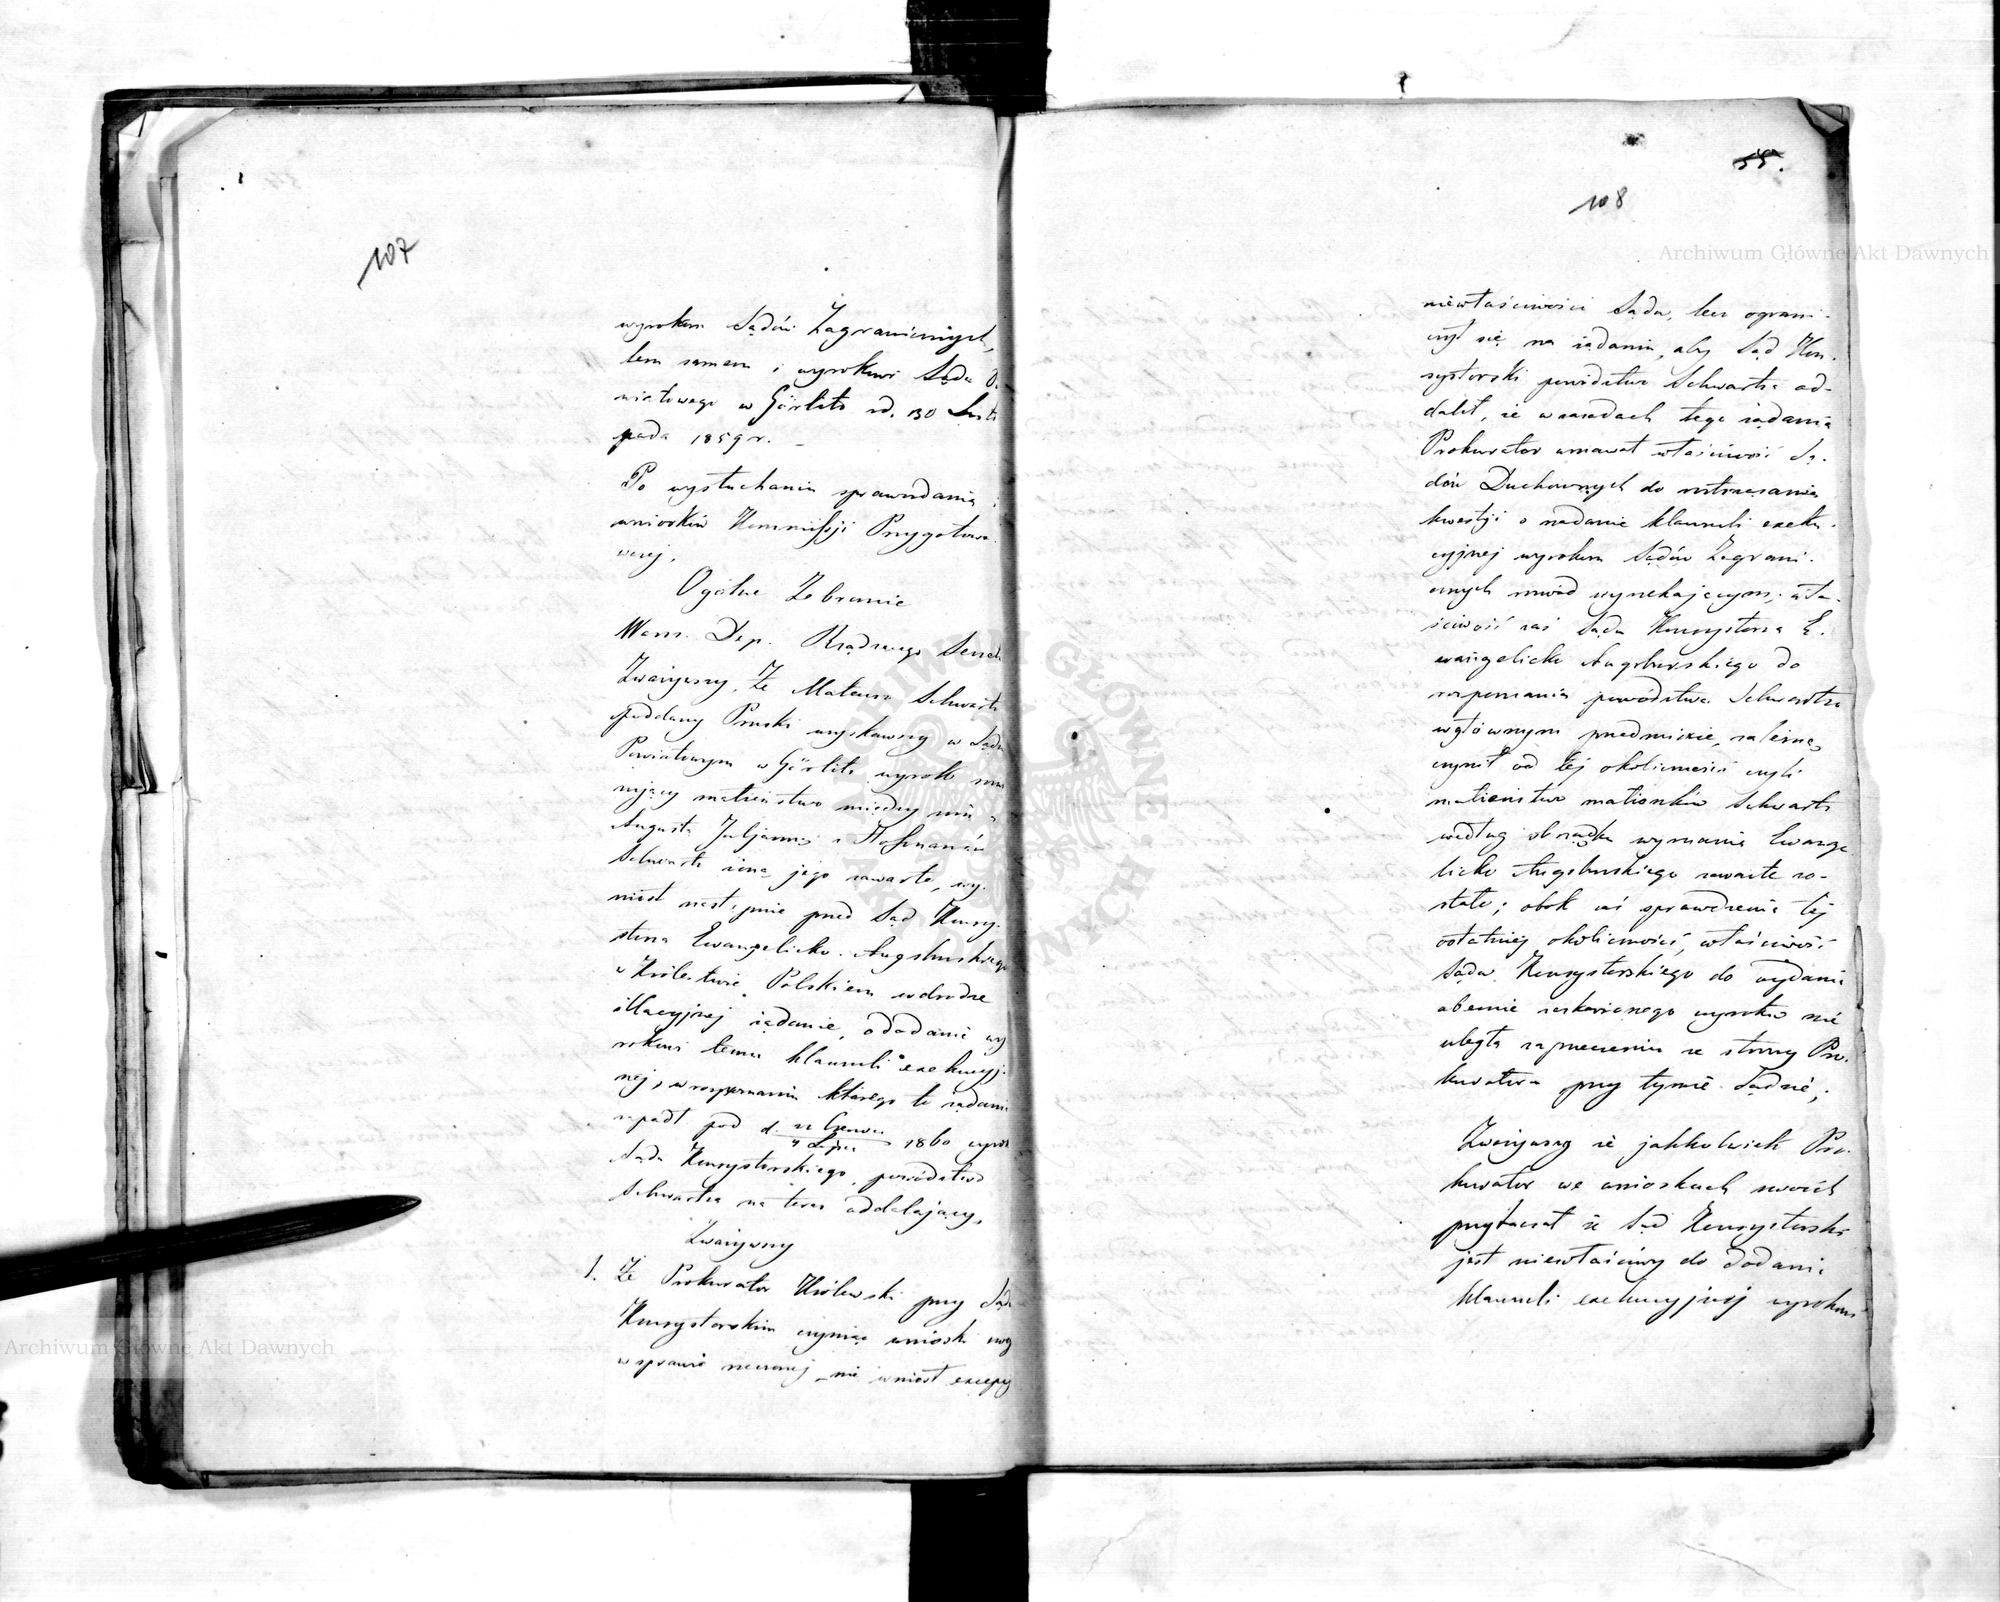 107
wyrokom Sądów Zagranicznych,
tem samem i wyrokowi Sądu
wiatowego w Görlitz d. 30 Listo
pada 1859 r.
Po wysłuchaniu sprawozdania i
wniosków Kommissji Przygotowa-
wczej,
Ogólne Zebranie
Warsz. Dep. Rządzącego Senatu
Zważywszy, Że Mateusz Schwartz
poddany Pruski uzyskawszy w Sądzie
Powiatowym w Görlitz wyrok
małżeństwo między nim a
Augustą Juljanną z Hofmanów
Schwartz żoną jego zawarte, wy-
niósł następnie przed Sąd Konsy-
storza Ewangelicko-Augsburskiego
w Królestwie Polskiem w drodze
illacyjnej żądanie, o dodanie wy
rokowi temu klauzuli exekucyj-
nej, w rozpoznaniu którego to żądania
zapadł pod d. 22 Czerwca
4 Lipca 1860 wyrok
Sądu Konsystorskiego, powództwo
Schwartza na teraz oddalający,
Zważywszy
1. Że Prokurator Królewski przy Sądzie
Konsystorskim czyniąc wnioski swe
w sprawie rzeczonej nie wniósł excepcyi
55.
108
Archiwum Główne Akt Dawnych
niewłaściwości Sądu, lecz ograni-
czył się na żądaniu, aby Sąd Kon-
systorski powództwo Schwartza od-
dalił, że w zasadach tego żądania
Prokurator uznawał właściwość Są-
dów Duchownych do roztrząsania
kwestji o nadanie klauzuli exeku-
cyjnej wyrokom Sądów Zagrani-
cznych rozwód wyrzekającym; wła-
ściwość zaś Sądu Konsystorza E-
wangelicko Augsburskiego do
rozpoznania powództwa Schwartza
w głównym przedmiocie, zależną
czynił od tej okoliczności czyli
małżeństwo małżonków Schwartz
według obrządku wyznania Ewange
licko Augsburskiego zawarte zo-
stało; obok zaś sprawdzenia tej
ostatniej okoliczności, właściwość
Sądu Konsystorskiego do wydania
obecnie zaskarżonego wyroku nie
uległa zaprzeczeniu ze strony Pro-
kuratora przy tymże Sądzie;
Zważywszy że jakkolwiek Pro-
kurator we wnioskach swoich
przytaczał że Sąd Konsystorski
jest niewłaściwy do dodania
klauzuli exekucyjnej wyrokowi
Archiwum Główne Akt Dawnych
ARCHIWUM GŁÓWNE AKT DAWNYCH